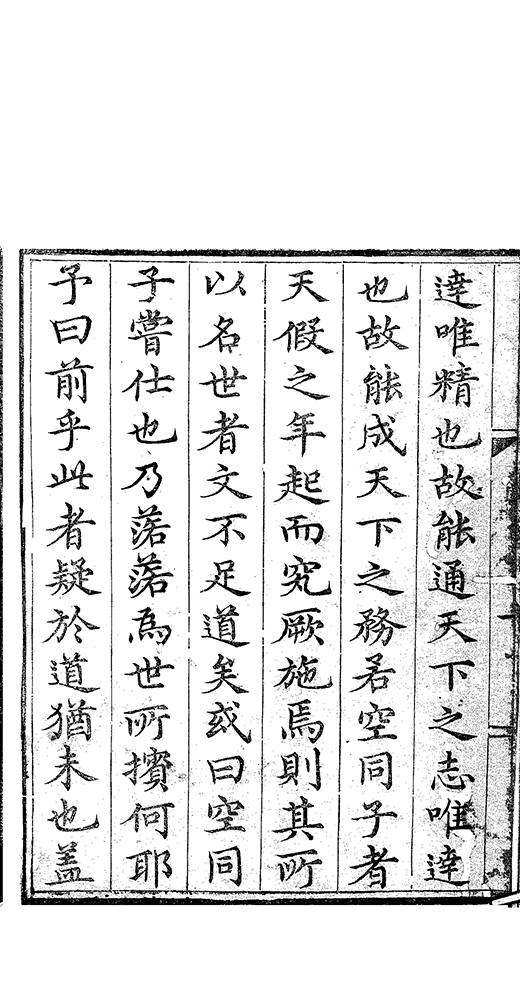 達唯精也故能通天下之志唯達
也故能成天下之務若空同子者
天假之年起而究厥施焉則其所
以名世者文不足道矣或曰空同
子嘗仕也乃落落爲世所擯何耶
予曰前乎此者疑於道猶未也蓋